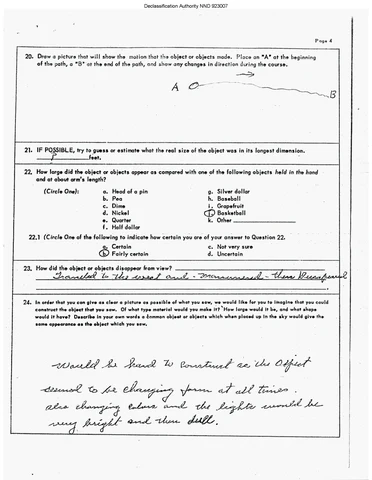 Declassification Authority NND 923007
Page 4
20. Draw a picture that will show the motion that the object or objects made. Place an "A" at the beginning
of the path, a "B" at the end of the path, and show any changes in direction during the course.
A
B
21. IF POSSIBLE, try to guess or estimate what the real size of the object was in its longest dimension.
feet.
22. How large did the object or objects appear as compared with one of the following objects held in the hand
and at about arm's length?
(Circle One):
a. Head of a pin
g. Silver dollar
b. Pea
h. Baseball
c. Dime
i. Grapefruit
d. Nickel
j. Basketball
e. Quarter
k. Other
f. Half dollar
22.1 (Circle One of the following to indicate how certain you are of your answer to Question 22.
a. Certain
c. Not very sure
b. Fairly certain
d. Uncertain
23. How did the object or objects disappear from view?
Traveled to the west and - manuevered - then Disappeared
24. In order that you can give as clear a picture as possible of what you saw, we would like for you to imagine that you could
construct the object that you saw. Of what type material would you make it? How large would it be, and what shape
would it have? Describe in your own words a common object or objects which when placed up in the sky would give the
same appearance as the object which you saw.
would be hard to construct as the object
seemed to be changing form at all times.
also changing colors and the lights would be
very bright and then dull.